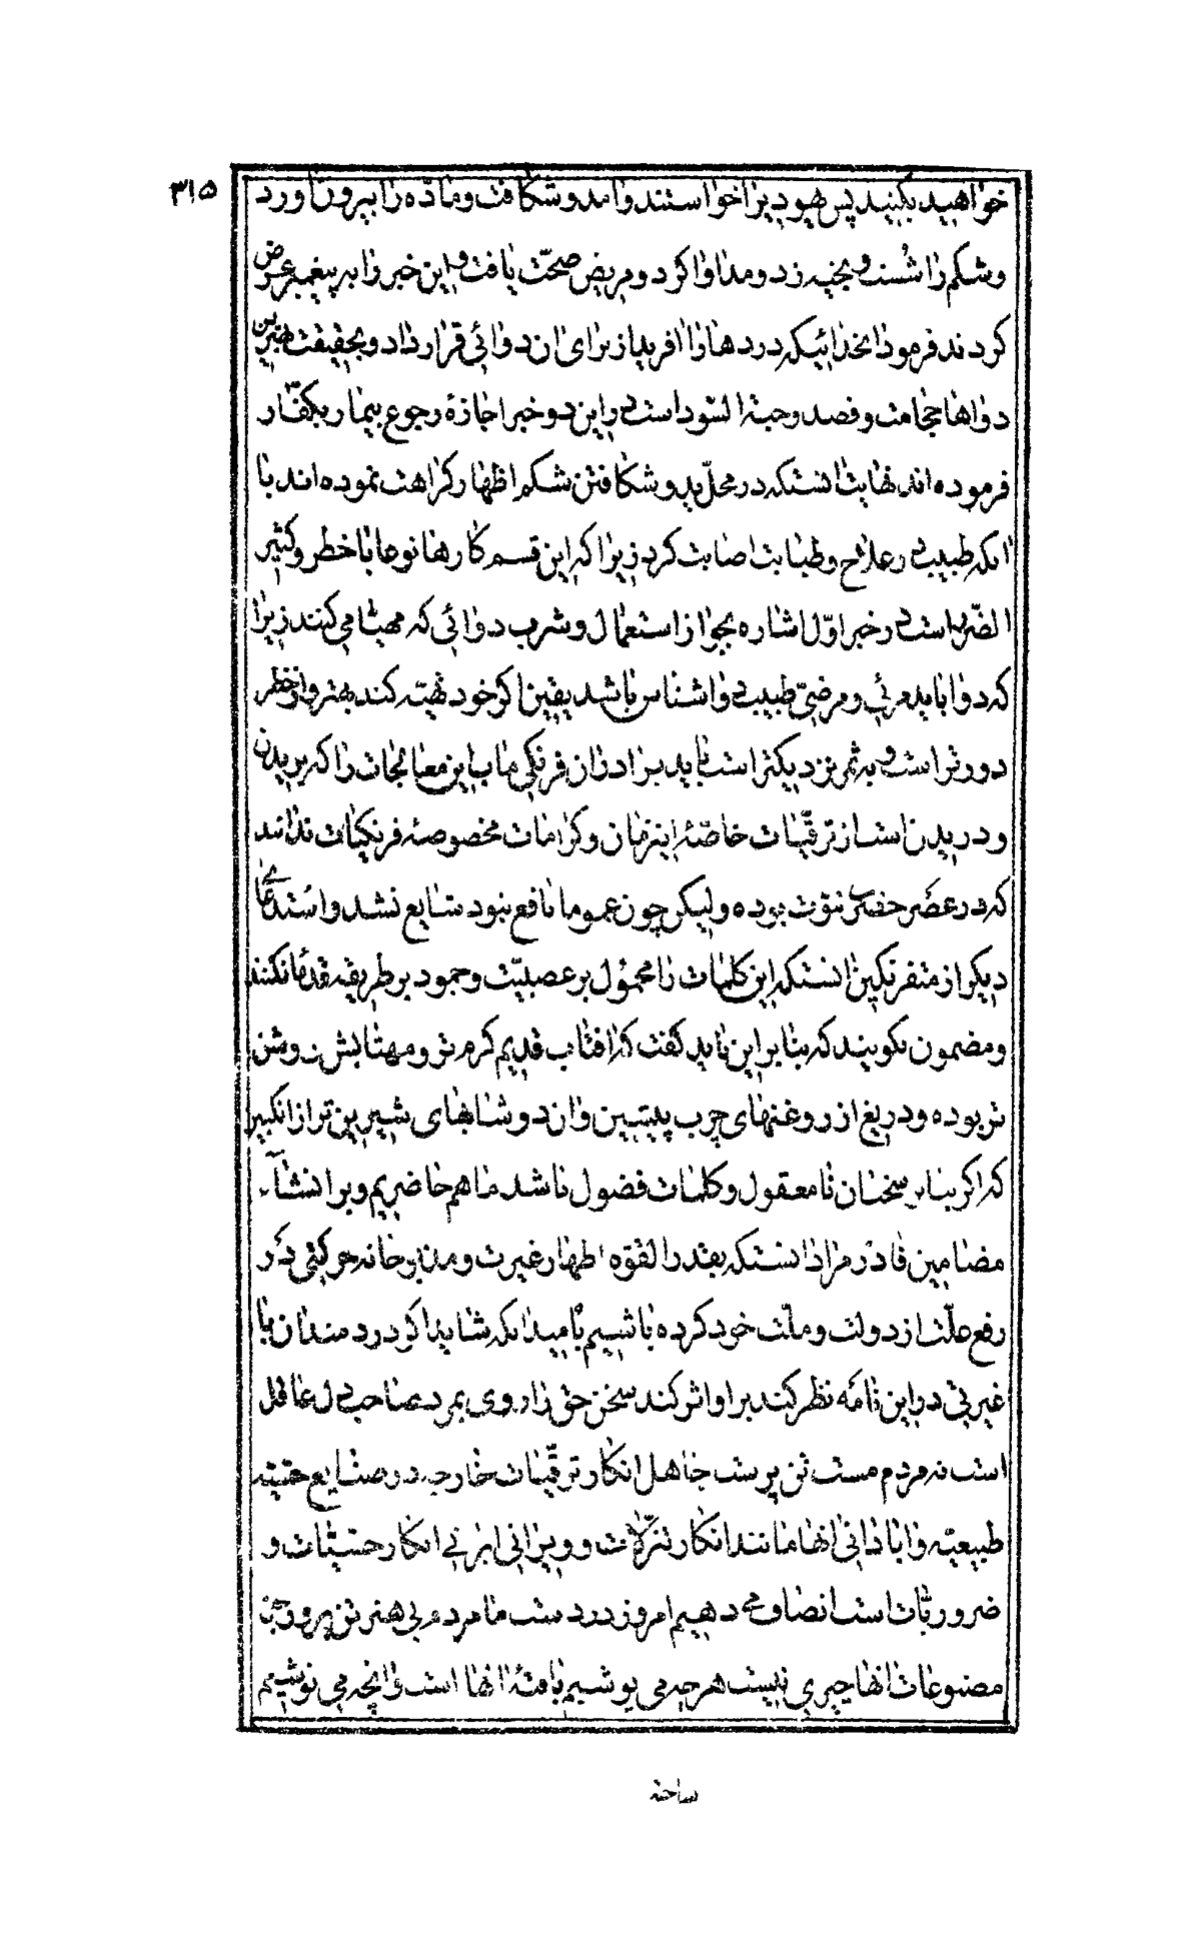 ۳۱۵
خواهید بکنید پس یهودیرا خواستند و آمد و شکافت و مادّه را بیرون آورد
و شکم را شست و بخیه زد و مداوا کرد و مریض صحّت یافت و این خبر را به پیغمبر عرض
کردند فرمود آنخدائیکه دردها را آفرید از برای آن دوائی قرار داد و بحقیقت بهترین
دواها حجامت و فصد و حبة السّوداست و این دو خبر اجازهٔ رجوع بیمار بکفّار
فرموده‌اند نهایت آنستکه در محلّ بد و شکافتن شکم اظهار کراهت نموده‌اند با
آنکه طبیب در علاج و طبابت اصابت کرد زیرا که این قسم کارها نوعا با خطر و کثیر
الضّرر است در خبر اوّل اشاره بجواز استعمال و شرب دوائی که مهیّا می‌کنند زیرا
که دوا باید مرئی و مرضیّ طبیب دوا شناس باشد یقین اگر خود تهیّه کند بهتر و از خطر
دورتر است و به ثمر نزدیکتر است باید برادران فرنگی مآب این معالجات را که بریدن
و دریدن است از ترقّیات خاصّهٔ اینزمان و کرامات مخصوصهٔ فرنگیان ندانند
که در عصر حضرت نبوّت بوده ولیکن چون عموما نافع نبود شایع نشد و استدعای
دیگر از متفرنگین آنستکه این کلمات را محمول بر عصبیّت و جمود بر طریقه قدما نکنند
و مضمون نگویند که بنا براین باید گفت که آفتاب قدیم گرم‌تر و مهتابش روشن
تر بوده و دریغ از روغنهای چرب پیشین و آن دوشابهای شیرین‌تر از انگبین
که اگر بنا بر سخنان نامعقول و کلمات فضول باشد ما هم حاضریم و بر انشآء
مضامین قادر مراد آنستکه بقدر القوّه اظهار غیرت و مذبوحانه حرکتی در
رفع علّت از دولت و ملّت خود کرده باشیم بامید آنکه شاید اگر دردمندان با
غیرتی در این نامه نظر کند بر او اثر کند سخن حق را روی بمرد صاحب‌دل عاقل
است نه مردم مست تن پرست جاهل انکار ترقّیات خارجه در صنایع حسّیّه
طبیعیّه و آبادانی آنها مانند انکار تنزّلات و ویرانی ایران انکار حسّیّات و
ضروریّات است انصاف می‌دهیم امروز در دست ما مردم بی هنر تن پرور جز
مصنوعات آنها چیزی نیست هر چه می پوشیم بافتهٔ آنها است و آنچه می نوشیم
ساخته